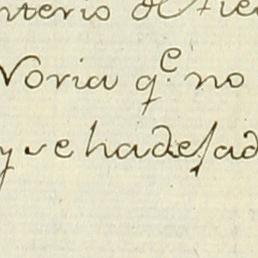 nterio de Tie
Noria q.e no
y se hadesad